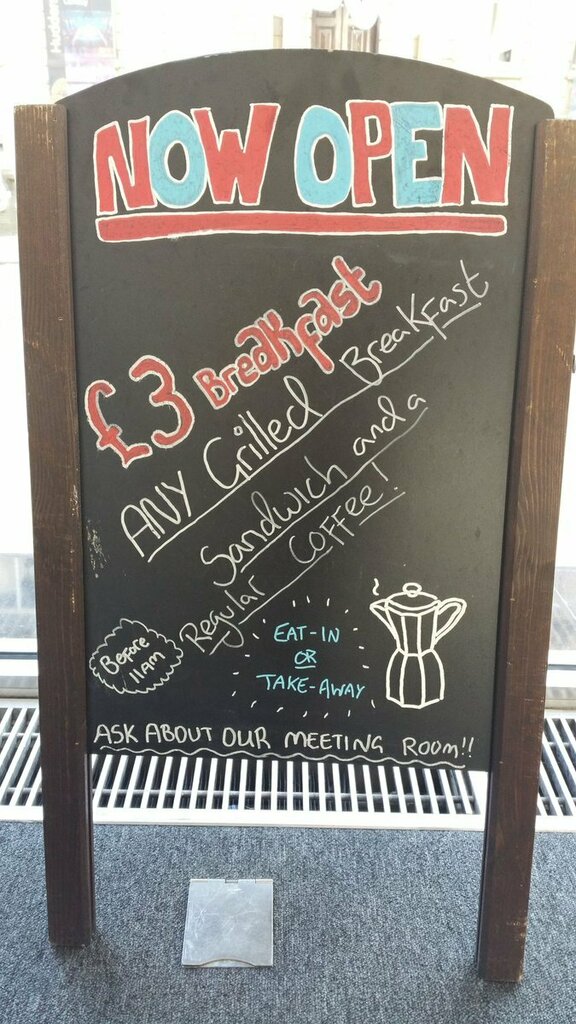 NOW OPEN
£3 Breakfast
ANY Grilled Breakfast
Sandwich and a
Regular Coffee!
Before
11am
EAT-IN
OR
TAKE-AWAY
ASK ABOUT OUR MEETING ROOM!!